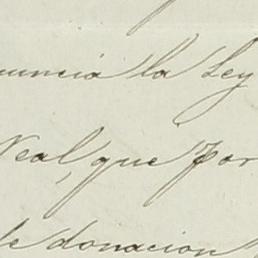 nuncia la Ley
Real, que por
de donacion